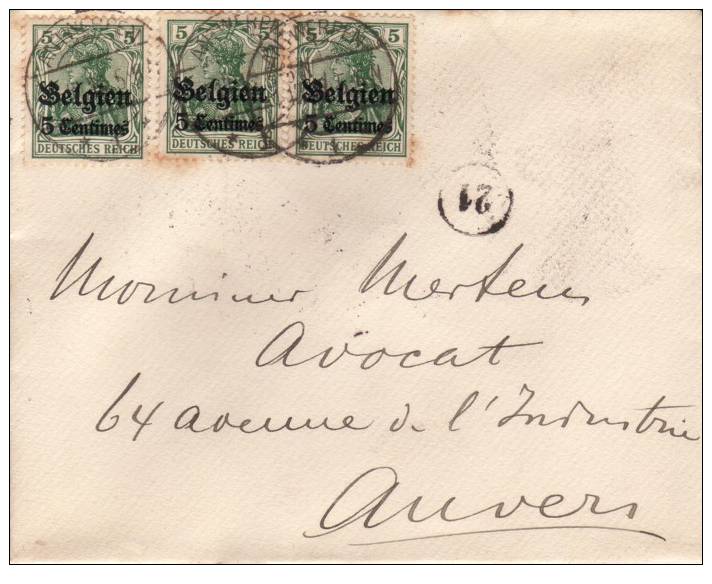 5 5 5 5 5 5
Belgien Belgien Belgien
5 Centimes 5 Centimes 5 Centimes
DEUTSCHES REICH DEUTSCHES REICH DEUTSCHES REICH
21
Monsieur Mertens
Avocat
64 avenue de l'Industrie
Anvers